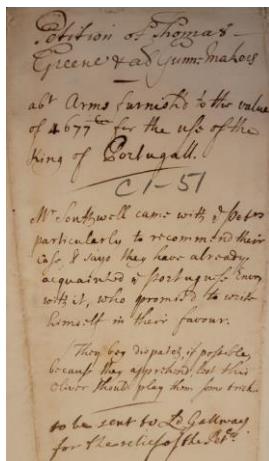 Petition of Thomas
Greene & al Gunn: Makers
abt Arms furnish'd to the value
of 4677 for the use of the
King of Portugall.
C1-51
Mr Southwell came with ye Petrs
particularly to recommend their
case, & says they have already
acquainted ye Portuguese Envoy
with it, who promised to write
himself in their favour.
They beg dispatch, if possible,
because they apprehend, lest this
Oliver should play them some trick.
to be sent to Ld Gallway
for the relief of the Petrs